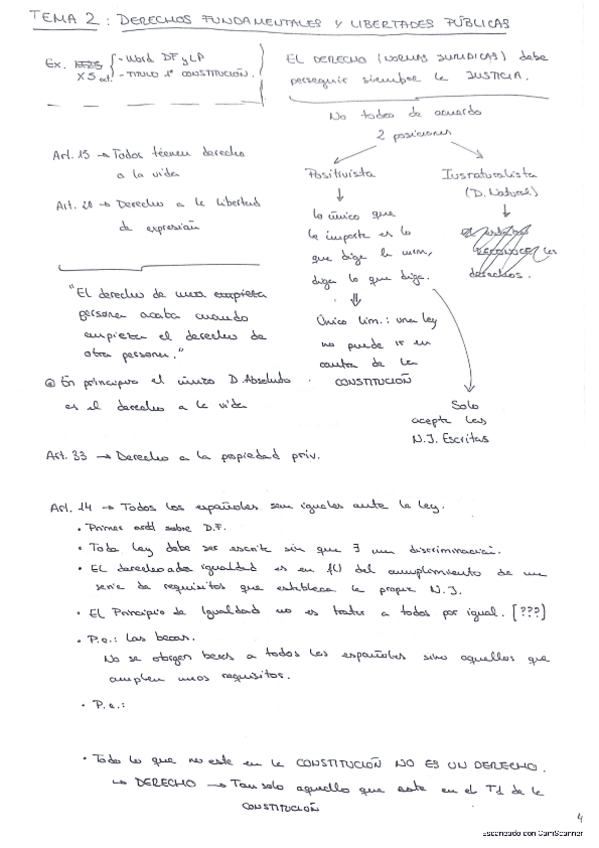 TEMA 2: DERECHOS FUNDAMENTALES Y LIBERTADES PÚBLICAS
Ex.
- Word DF y LP
X5
- TITULO 1º CONSTITUCIÓN.
EL DERECHO (NORMAS JURIDICAS) debe
perseguir siempre la JUSTICIA.
No todos de acuerdo
2 posiciones
Art. 15 → Todos tienen derecho
a la vida
Art. 20 → Derecho a la libertad
de expresión
"El derecho de una empieza
persona acaba cuando
empieza el derecho de
otra persona."
En principio el único D. Absoluto
es el derecho a la vida
Positivista
↓
lo único que
le importa es lo
que diga la norm,
diga lo que diga.
⇓
Único lim.: una ley
no puede ir en
contra de la
CONSTITUCIÓN
Iusnaturalista
(D. Natural)
↓
derechos.
Solo
acepta las
N.J. Escritas
Art. 33 → Derecho a la propiedad priv.
Art. 14 → Todos los españoles son iguales ante la ley.
• Primer artd sobre D.F.
• Toda ley debe ser escrita sin que ∃ una discriminación.
• EL derecho a la igualdad es en f() del cumplimiento de una
serie de requisitos que establece la propia N.J.
• El Principio de Igualdad no es tratar a todos por igual. [???]
• P.e.: Las becas.
No se otorgan becas a todos los españoles sino aquellos que
cumplen unos requisitos.
• P.e.:
• Todo lo que no este en la CONSTITUCIÓN NO ES UN DERECHO.
↳ DERECHO → Tan solo aquello que este en el T1 de la
CONSTITUCIÓN
4
Escaneado con CamScanner